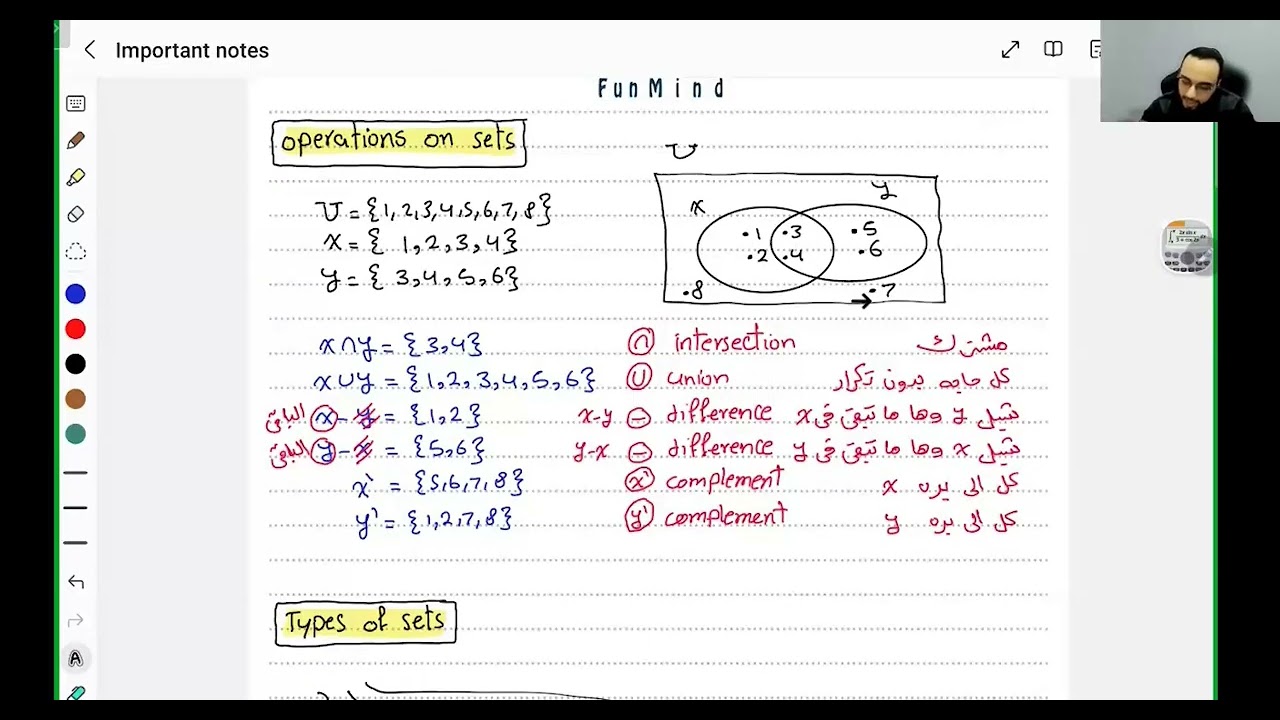 Important notes
FunMind
operations on sets
U
U = {1, 2, 3, 4, 5, 6, 7, 8}
x = { 1, 2, 3, 4}
y = { 3, 4, 5, 6}
x y
.1 .3 .5
.2 .4 .6
.8 .7
x∩y = {3, 4} ∩ intersection مشترك
x∪y = {1, 2, 3, 4, 5, 6} ∪ union كل حاجه بدون تكرار
الباقى x - y = {1, 2} x-y − difference شيل y وها ما تبقى فى x
الباقى y - x = {5, 6} y-x − difference شيل x وها ما تبقى فى y
x` = {5, 6, 7, 8} x` complement كل الى بره x
y` = {1, 2, 7, 8} y` complement كل الى بره y
Types of sets